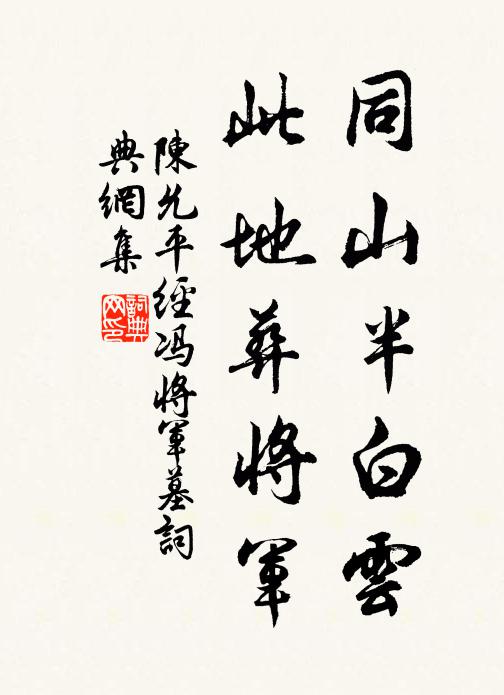 同山半白雲
此地葬將軍
陳允平經馮將軍墓詞
典網集
詞典
网印